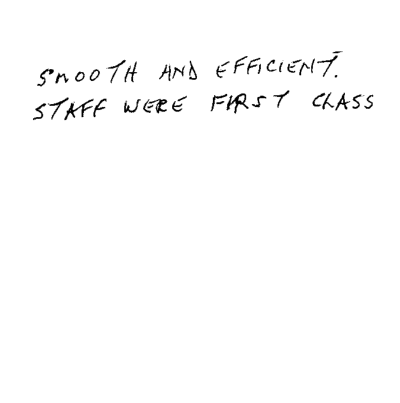 SMOOTH AND EFFICIENT.
STAFF WERE FIRST CLASS